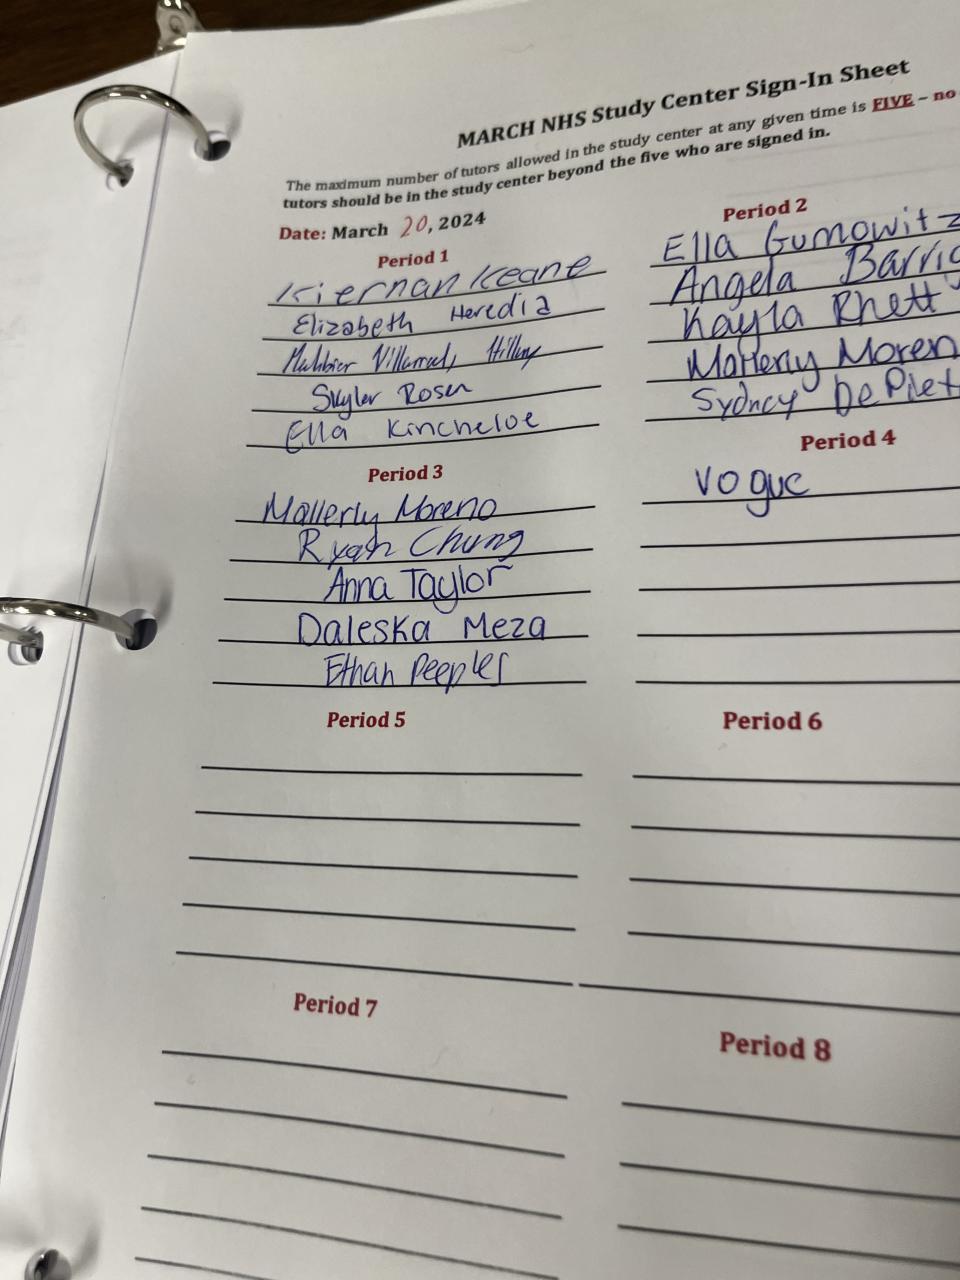 MARCH NHS Study Center Sign-In Sheet
The maximum number of tutors allowed in the study center at any given time is FIVE – no
tutors should be in the study center beyond the five who are signed in.
Date: March 20, 2024
Period 1
Kiernan Keane
Elizabeth Heredia
Skyler Rosen
Ella Kincheloe
Period 2
Ella Gumowitz
Angela
Kayla Rhett
Mallerly Moren
Sydney DePiet
Period 3
Mallerly Moreno
Ryan Chung
Anna Taylor
Daleska Meza
Ethan Peeples
Period 4
Vogue
Period 5
Period 6
Period 7
Period 8